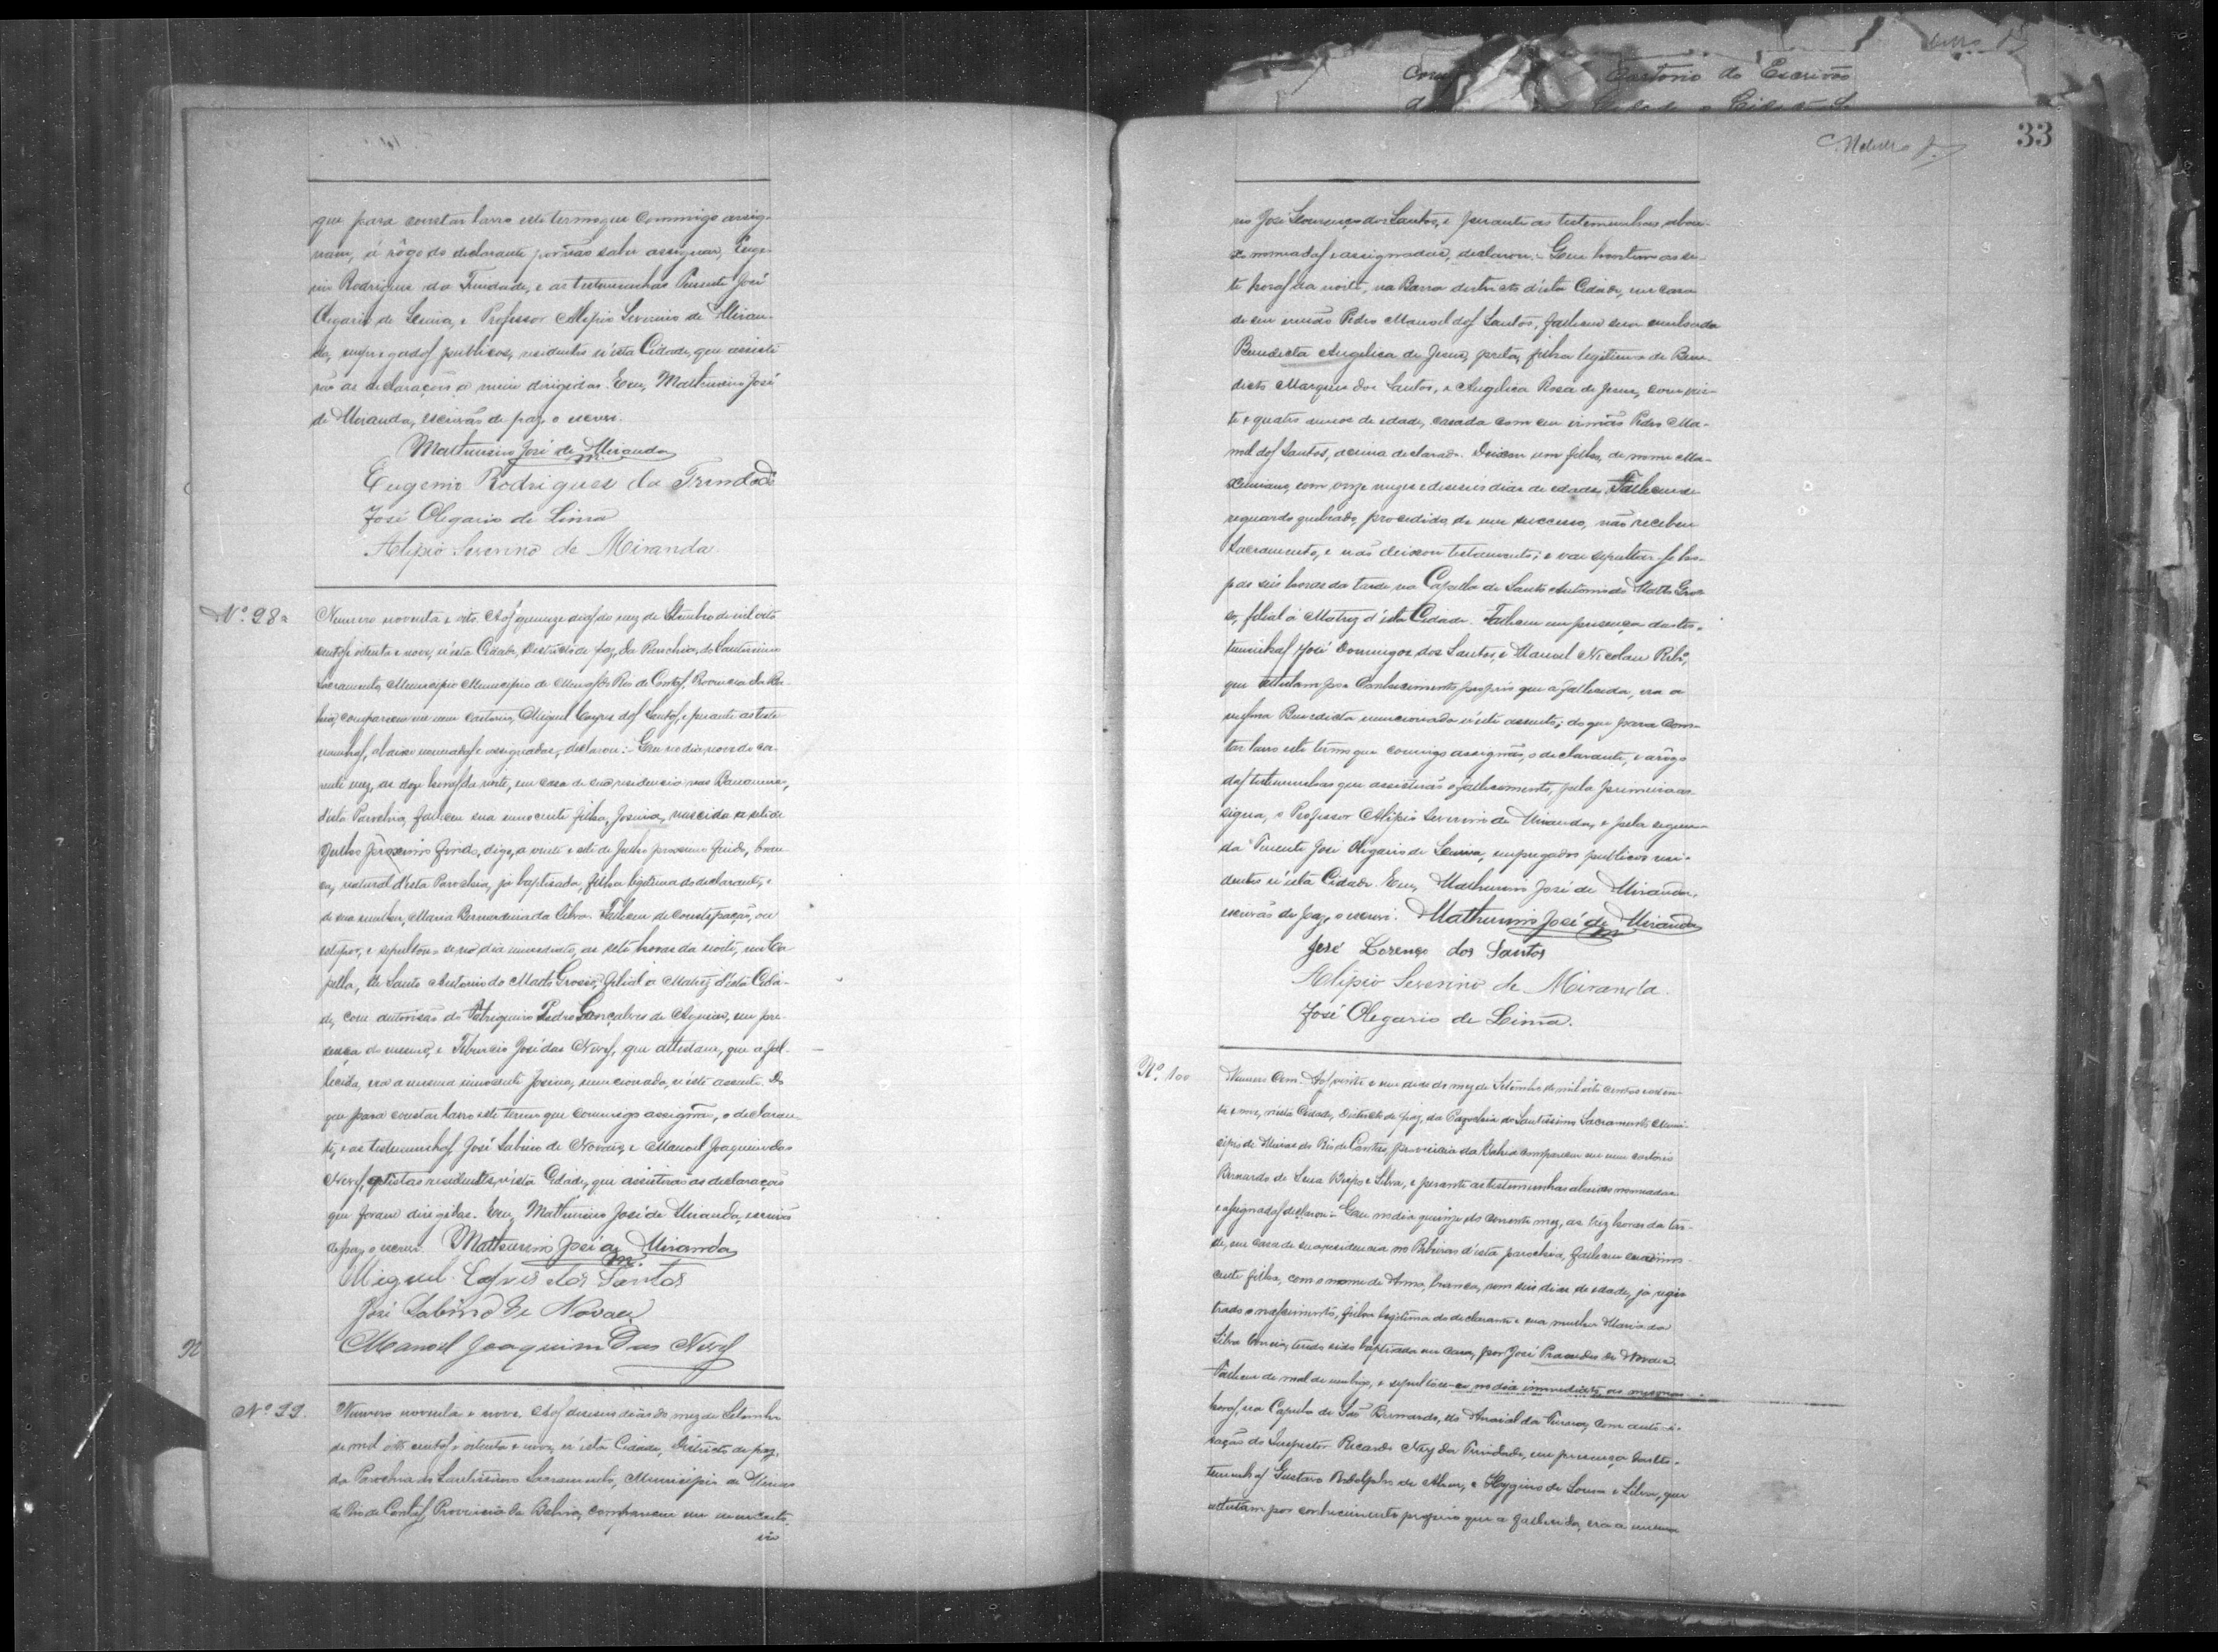 que para constar lavro este termo que commigo assig-
nam, á rôgo do declarante por não saber assignar, Euge-
nio Rodrigues da Trindade, e as testemunhas Tenente José
Olegario de Lima, e Professor Alipio Severino de Miran-
da, empregados publicos, residentes n'esta Cidade, que assisti-
rão as declarações a mim dirigidas. Eu, Mathurino José
de Miranda, escrivão de paz, o escrevi.
Mathurino José de Miranda
Eugenio Rodrigues da Trindade
José Olegario de Lima
Alipio Severino de Miranda
Nº 98
Numero noventa e oito. Aos quinze dias do mez de Setembro de mil oito
centos e oitenta e nove, n'esta Cidade, Districto de paz, da Parochia do Santissimo
Sacramento, Municipio Municipio de Minas do Rio de Contas, Provincia da Ba-
hia, compareceu em meu cartorio, Miguel dos Santos, e perante as teste-
munhas, abaixo nomeadas e assignadas, declarou: Que no dia nove do cor-
rente mez, as doze horas da noite, em casa de sua residencia nas Bananeiras,
d'esta Parochia, falleceu sua innocente filha, Josina, nascida a sete de
Julho proximo findo, digo, a vinte e sete de Julho proximo findo, bran-
ca, natural d'esta Parochia, já baptisada, filha legitima do declarante, e
de sua mulher, Maria Bernardina da Silva. Falleceu de constipação, ou
estupor, e sepultou-se no dia immediato, as sete horas da noite, na Ca-
pella, de Santo Antonio do Matto Grosso, filial a Matriz d'esta Cida-
de, com autorisão do Pedro Gonçalves de Aguiar, em pre-
sença do mesmo, e Tiburcio José das Neves, que attestam, que a fal-
lecida, era a mesma innocente Josina, mencionada, n'este assento. Do
que para constar lavro este termo que commigo assignão, o declaran-
te, e as testemunhas José Sabino de Novais, e Manoel Joaquim das
Neves, artistas residentes, n'esta Cidade, que assistirão as declarações
que foram dirigidas. Eu, Mathurino José de Miranda, escrivão
de paz, o escrevi. Mathurino José de Miranda
Miguel dos Santos
José Sabino de Novaes
Manoel Joaquim Das Neves
Nº 99.
Numero noventa e nove. Aos diseseis dias do mez de Setembro
de mil oito centos e oitenta e nove, n'esta Cidade, Districto de paz,
da Parochia do Santissimo Sacramento, Municipio de Minas
do Rio de Contas, Provincia da Bahia, compareceu em meu carto-
rio
33
rio José Lourenço dos Santos, e perante as testemunhas abai-
xo nomeadas e assignadas, declarou: Que hontem as se-
te horas da noite, na Barra districto d'esta Cidade, em casa
de seu irmão Pedro Manoel dos Santos, falleceu sua cunhada
Benedicta Angelica de Jesus, preta, filha legitima de Bene-
dicto Marques dos Santos, e Angelica Rosa de Jesus, com vin-
te e quatro annos de edade, casada com seu irmão Pedro Ma-
noel dos Santos, acima declarado. Deixou um filho, de nome Ma-
ximiano, com onze mezes e diseseis dias de edade. Falleceu de
resguardo quebrado, procedido, de um successo, não recebeu
Sacramento, e não deixou testamento; e vae sepultar-se ho-
je as seis horas da tarde, na Capella de Santo Antonio do Matto Gros-
so, filial á Matriz d'esta Cidade. Falleceu em presença das tes-
temunhas José Domingos dos Santos, e Manoel Nicolau Ribº,
que attestam por Conhecimento proprio que a fallecida, era a
mesma Benedicta mencionada n'este assento; do que para cons-
tar lavro este termo que commigo assignão, o declarante, e a rôgo
das testemunhas que assistirão o fallecimento, pela primeira as-
signa, o Professor Alipio Severino de Miranda, e pela segun-
da Tenente José Olegario de Lima, empregados publicos resi-
dentes n'esta Cidade. Eu, Mathurino José de Miranda,
escrivão de paz, o escrevi. Mathurino José de Miranda
José Lorenço dos Santos
Alipio Severino de Miranda.
José Olegario de Lima.
Nº 100
Numero Cem. Aos vinte e um dias do mez de Setembro de mil oito centos e oiten-
ta e nove, n'esta Cidade, Districto de paz, da Parochia do Santissimo Sacramento Muni-
cipio de Minas do Rio de Contas, Provincia da Bahia compareceu em meu cartorio
Bernardo de Sena e Silva, e perante as testemunhas abaixo nomeadas
e assignadas declarou: Que no dia quinze do corrente mez, as trez horas da tar-
de, em casa de sua residencia no d'esta parochia, falleceu sua inno-
cente filha, com o nome de Anna, branca, com seis dias de edade, já regis-
trado o nascimento, filha legitima do declarante e sua mulher Maria da
Silva tendo sido baptisada em casa, por José de Novaes.
Falleceu de mal de umbigo, e sepultou-se no dia immediato, as mesmas
horas, na Capella de São Bernardo, do Arraial da Furna, com auto-ri-
sação do Inspector Ricardo da Trindade, em presença das tes-
temunhas Gustavo Rodolpho de e Hygino de Souza e Silva, que
attestam por conhecimento proprio que a fallecida, era a mesma